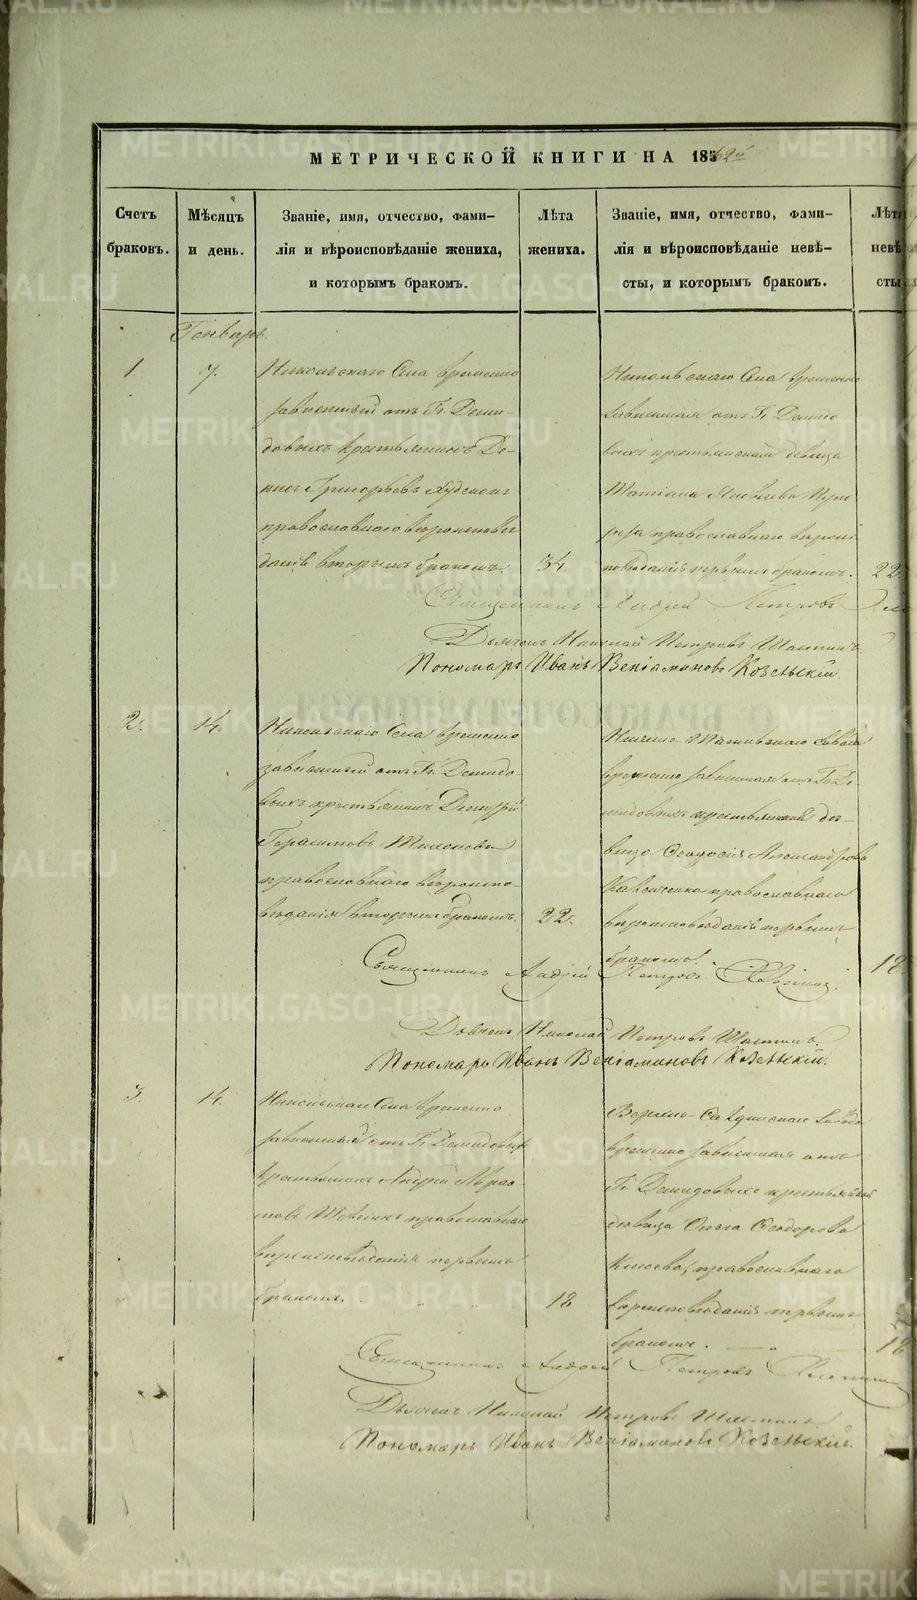 МЕТРИЧЕСКОЙ КНИГИ НА 1862й
Счетъ браковъ.
Мѣсяцъ и день.
Званіе, имя, отчество, фами-
лія и вѣроисповѣданіе жениха,
и которымъ бракомъ.
Лѣта
жениха.
Званіе, имя, отчество, фами-
лія и вѣроисповѣданіе невѣ-
сты, и которымъ бракомъ.
Лѣта
невѣ
сты
Генварь.
1.
7.
Никольскаго Села временно
зависящій отъ Гг. Деми-
довыхъ крестьянинъ
Григорьевъ
православнаго вѣроисповѣ
данія вторымъ бракомъ.
34.
Села временно
зависящая отъ Гг. Демидо
выхъ крестьянская девица
Татіана Яковлева
православнаго вѣроис
повѣданія первымъ бракомъ.
22.
Священникъ Андрей Петровъ
Дьячекъ Николай Петровъ
Пономарь Иванъ Веніаминовъ Козельскій.
2.
14.
Никольскаго Села временно
зависящій отъ Гг. Демидо-
выхъ крестьянинъ Димитрій
Герасимовъ
православнаго вѣроиспо-
вѣданія вторымъ бракомъ.
22.
Нижне Тагильскаго Завода
временно зависящая отъ Гг. Де-
мидовыхъ крестьянская дѣ-
вица Ѳеодосія Александрова
православнаго
вѣроисповѣданія первымъ
бракомъ.
18
Священникъ Андрей Петровъ
Дьячекъ Николай Петровъ
Пономарь Иванъ Веніаминовъ Козельскій.
3.
14.
Никольскаго Села временно
зависящій отъ Гг. Демидовыхъ
крестьянинъ Андрей
православнаго
вѣроисповѣданія первымъ
бракомъ.
18
Верхне-Салдинскаго Завода
временно зависящая отъ
Гг. Демидовыхъ крестьянская
дѣвица Ольга Ѳеодорова
православнаго
вѣроисповѣданія первымъ
бракомъ.
18
Священникъ Андрей Петровъ
Дьячекъ Николай Петровъ
Пономарь Иванъ Веніаминовъ Козельскій.
METRIKI.GASO-URAL.RU